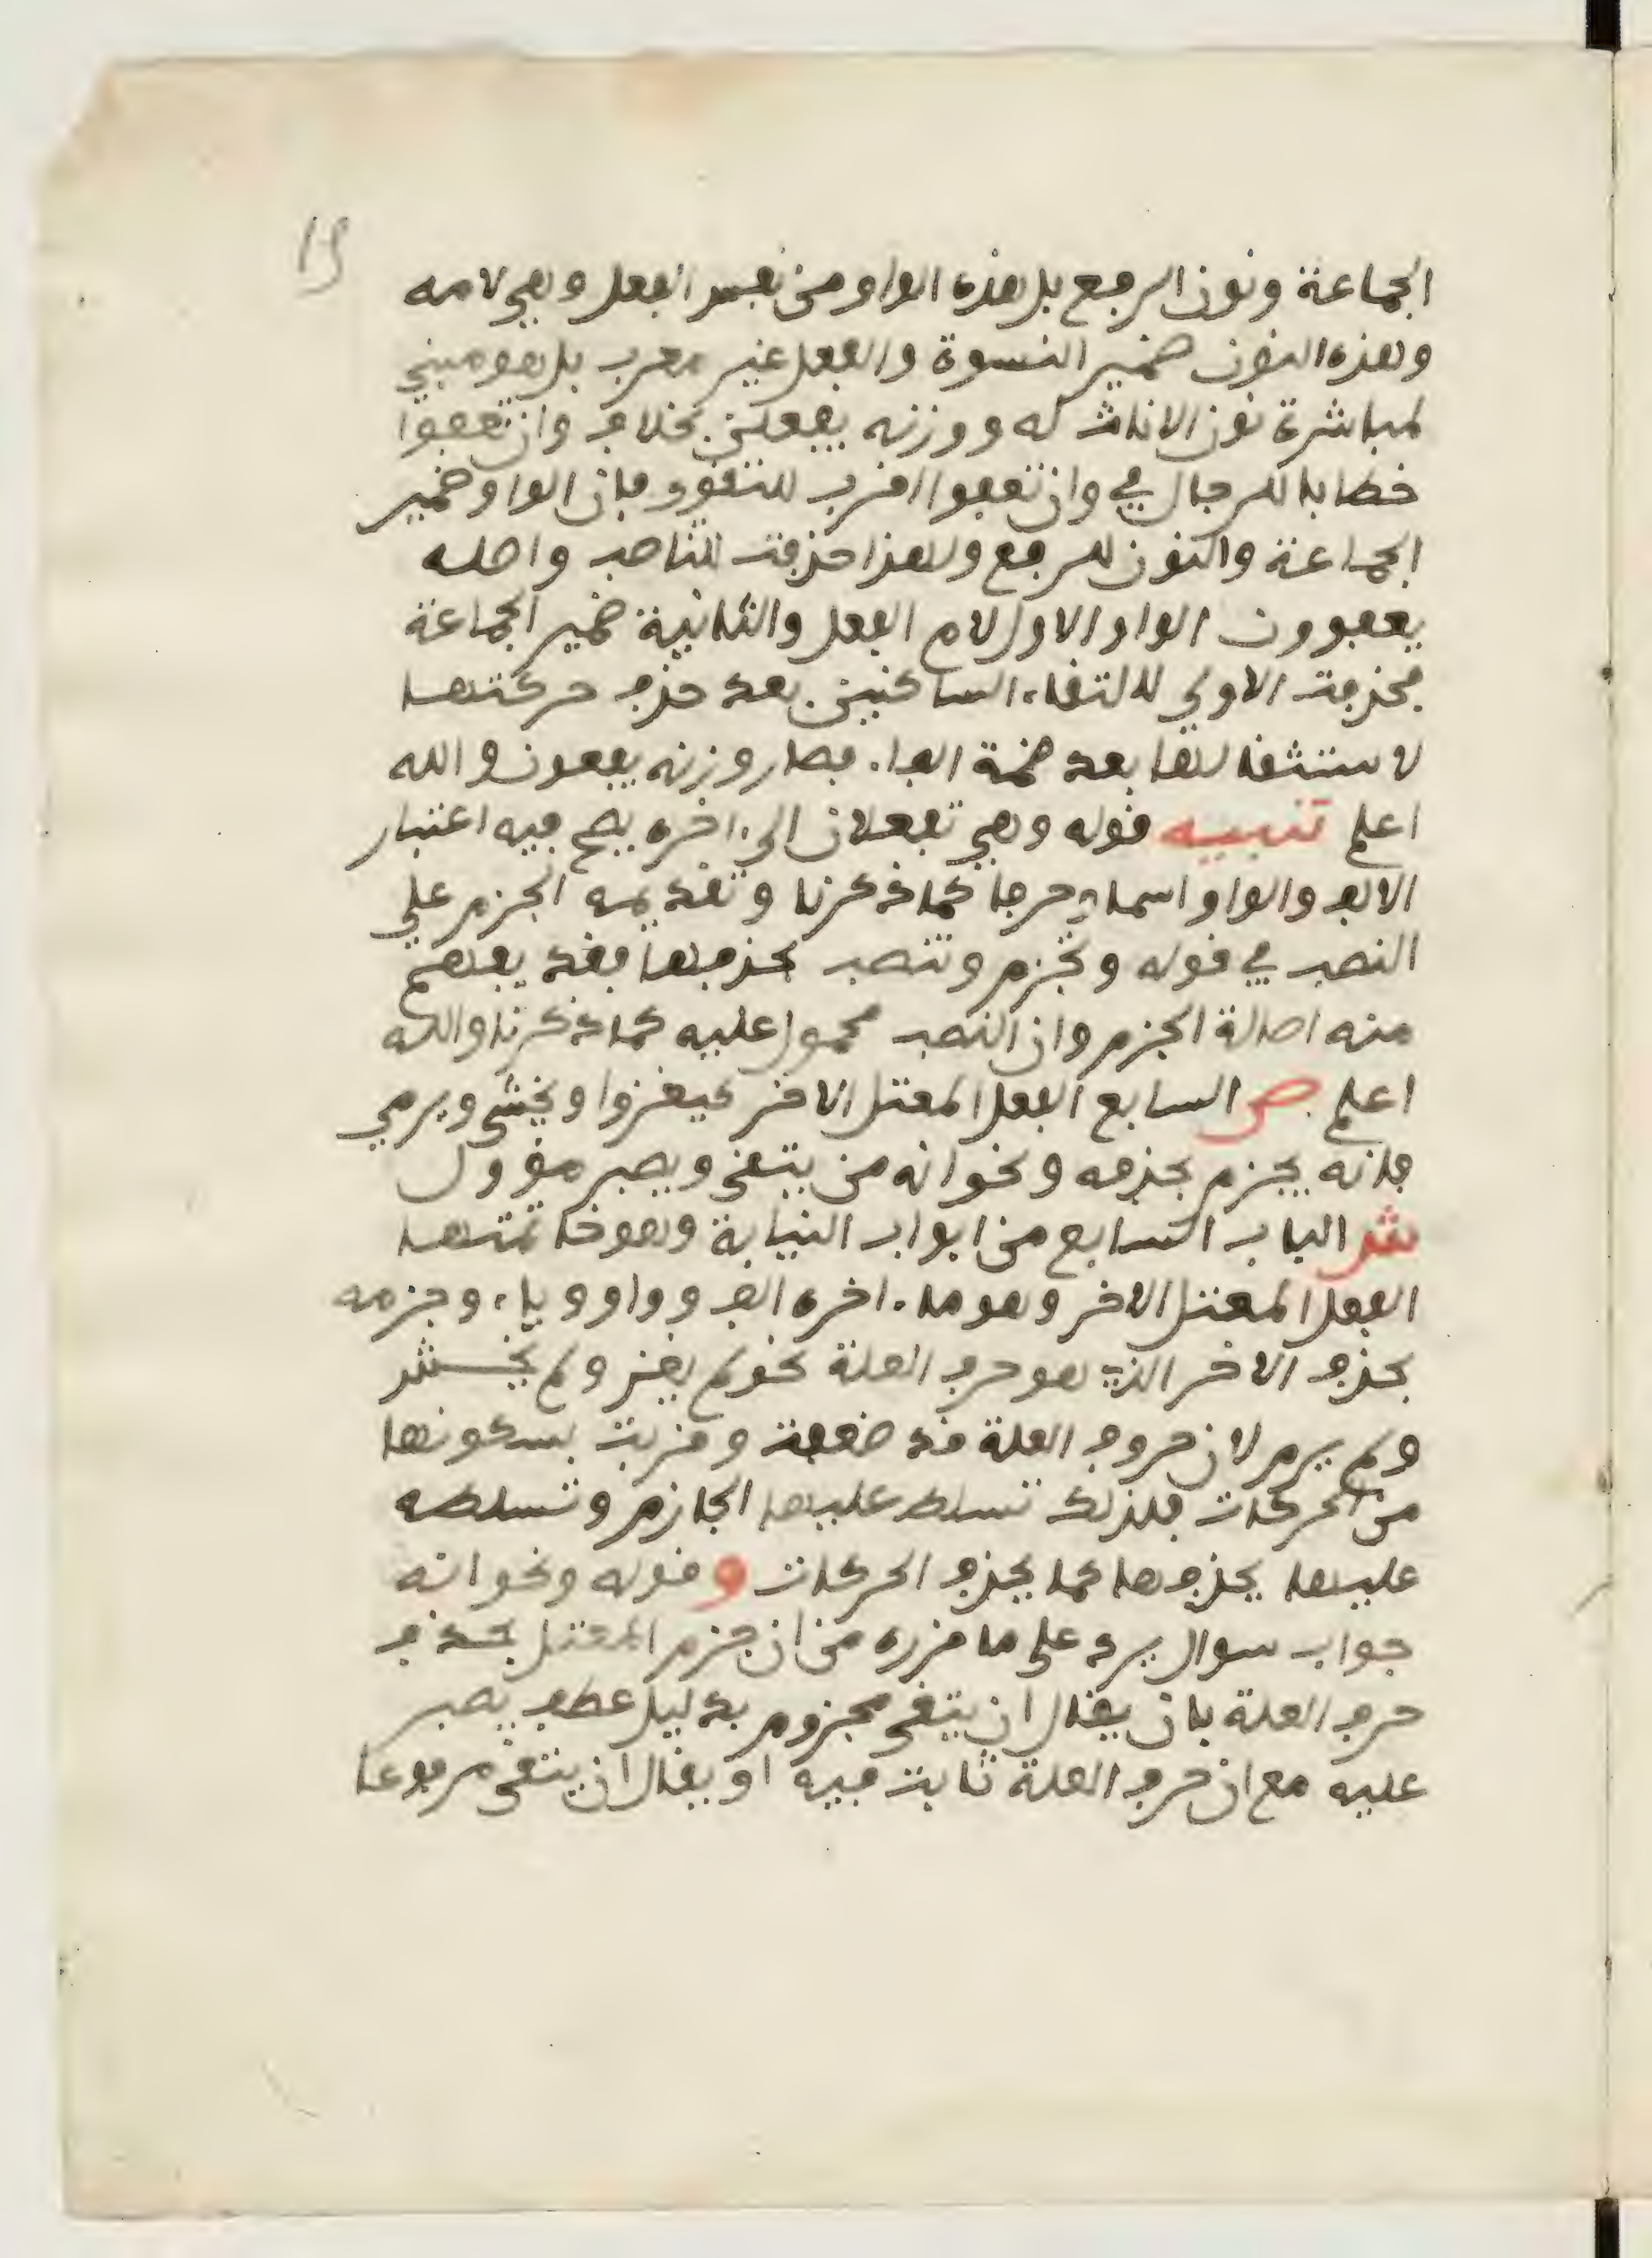 19
الجماعة ونون الرفع بل هذه الواو من نفس الفعل وهي لامه
وهذه النون ضمير النسوة والفعل غير معرب بل هو مبني
لمباشرة نون الاناث له ووزنه يفعلن بخلاف وان تعفوا
خطابا للرجال في وان تعفوا اقرب للتقوى فان الواو ضمير
الجماعة والنون للرفع ولهذا حذفت للناصب واصله
يعفوون الواو الاولى لام الفعل والثانية ضمير الجماعة
فحذفت الاولى لالتقاء الساكنين بعد حذف حركتها
لاستثقالها بعد ضمة الفاء فصار وزنه يفعون والله
اعلم تنبيه قوله وهي تفعلان الى اخره يصح فيه اعتبار
الالف والواو اسماء وحرفا كما ذكرنا وتقديمه الجزم على
النصب في قوله وتجزم وتنصب بحذفها فقد يفهم
منه اصالة الجزم وان النصب محمول عليه كما ذكرنا والله
اعلم ص السابع الفعل المعتل الاخر كيغزوا ويخشى ويرمي
فانه يجزم بحذفه ونحو انه من يتقي ويصبر مؤول
ش الباب السابع من ابواب النيابة وهو خاتمتها
الفعل المعتل الاخر وهو ما اخره الف وواو وياء وجزمه
بحذف الاخر الذي هو حرف العلة نحو لم يغز ولم يخش
ولم يرم لان حروف العلة قد ضعفت وقربت بسكونها
من الحركات فلذلك تسلط عليها الجازم وتسلطه
عليها بحذفها كما يحذف الحركات وقوله ونحو انه
جواب سوال يرد على ما قرره من ان جزم المعتل بحذف
حرف العلة بان يقال ان يتقي مجزوم بدليل عطف يصبر
عليه مع ان حرف العلة ثابت فيه او يقال ان يتقي مرفوعا